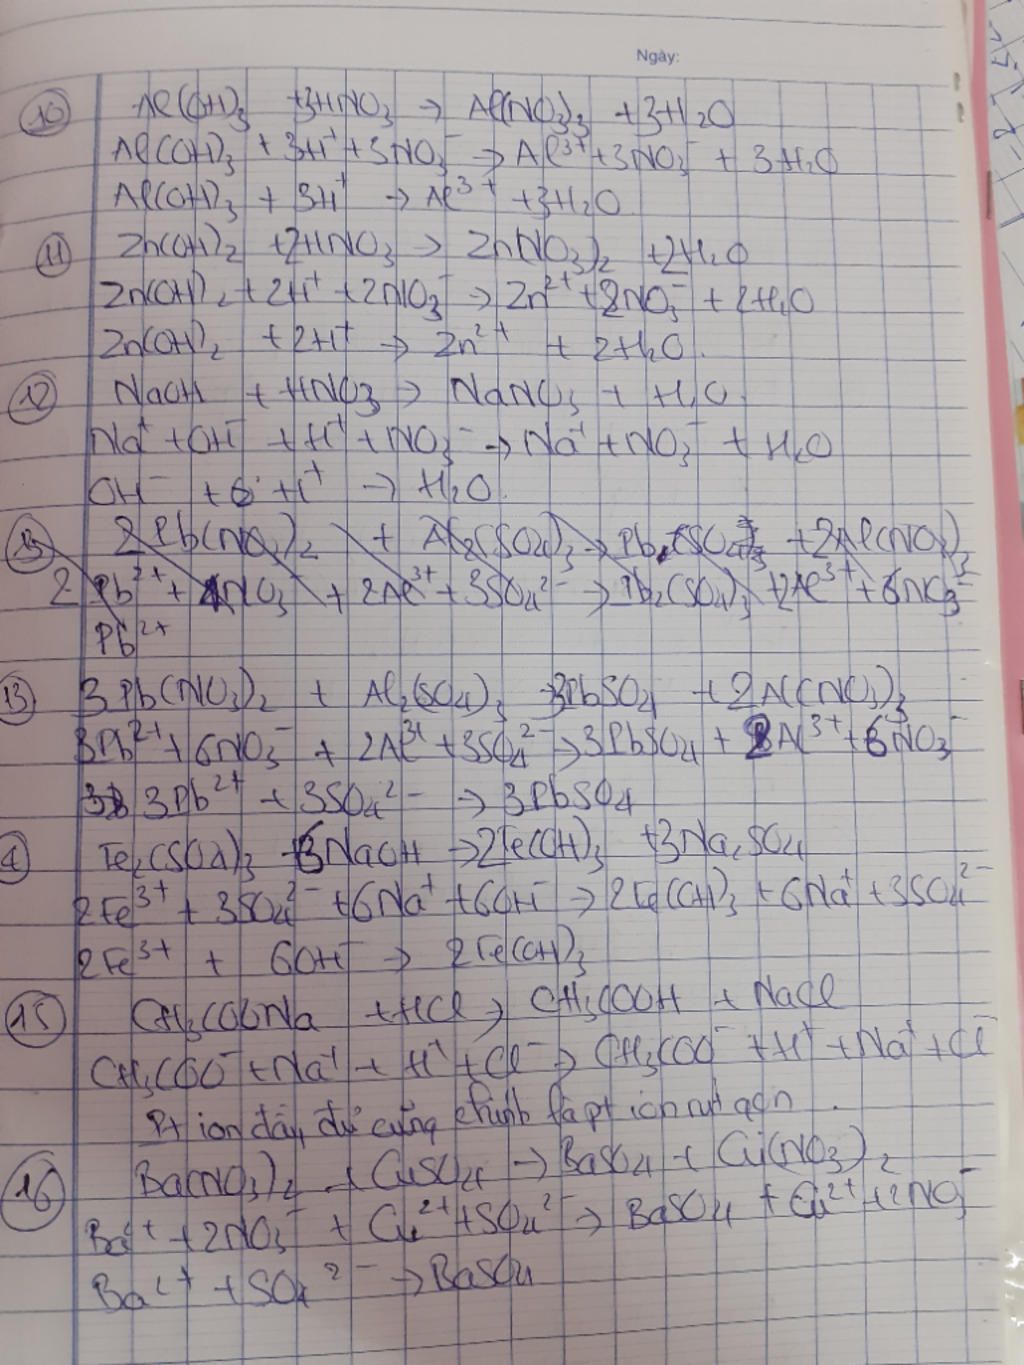 Ngày:
10 Al(OH)3 + 3HNO3 → Al(NO3)3 + 3H2O
Al(OH)3 + 3H+ + 3NO3- → Al3+ + 3NO3- + 3H2O
Al(OH)3 + 3H+ → Al3+ + 3H2O
11 Zn(OH)2 + 2HNO3 → Zn(NO3)2 + 2H2O
Zn(OH)2 + 2H+ + 2NO3- → Zn2+ + 2NO3- + 2H2O
Zn(OH)2 + 2H+ → Zn2+ + 2H2O.
12 NaOH + HNO3 → NaNO3 + H2O.
Na+ + OH- + H+ + NO3- → Na+ + NO3- + H2O
OH- + H+ → H2O.
13 2Pb(NO3)2 + Al2(SO4)3 → Pb2(SO4)3 + 2Al(NO3)3
2Pb2+ + 4NO3- + 2Al3+ + 3SO42- → Pb2(SO4)3 + 2Al3+ + 6NO3-
Pb2+
13 3Pb(NO3)2 + Al2(SO4)3 → 3PbSO4 + 2Al(NO3)3
3Pb2+ + 6NO3- + 2Al3+ + 3SO42- → 3PbSO4 + 2Al3+ + 6NO3-
3Pb2+ + 3SO42- → 3PbSO4
Fe2(SO4)3 + 6NaOH → 2Fe(OH)3 + 3Na2SO4
2Fe3+ + 3SO42- + 6Na+ + 6OH- → 2Fe(OH)3 + 6Na+ + 3SO42-
2Fe3+ + 6OH- → 2Fe(OH)3
15 CH3COONa + HCl → CH3COOH + NaCl
CH3COO- + Na+ + H+ + Cl- → CH3COO- + H+ + Na+ + Cl-
Pt ion đầy đủ cũng chính là pt ion rút gọn.
16 Ba(NO3)2 + CuSO4 → BaSO4 + Cu(NO3)2
Ba2+ + 2NO3- + Cu2+ + SO42- → BaSO4 + Cu2+ + 2NO3-
Ba2+ + SO42- → BaSO4